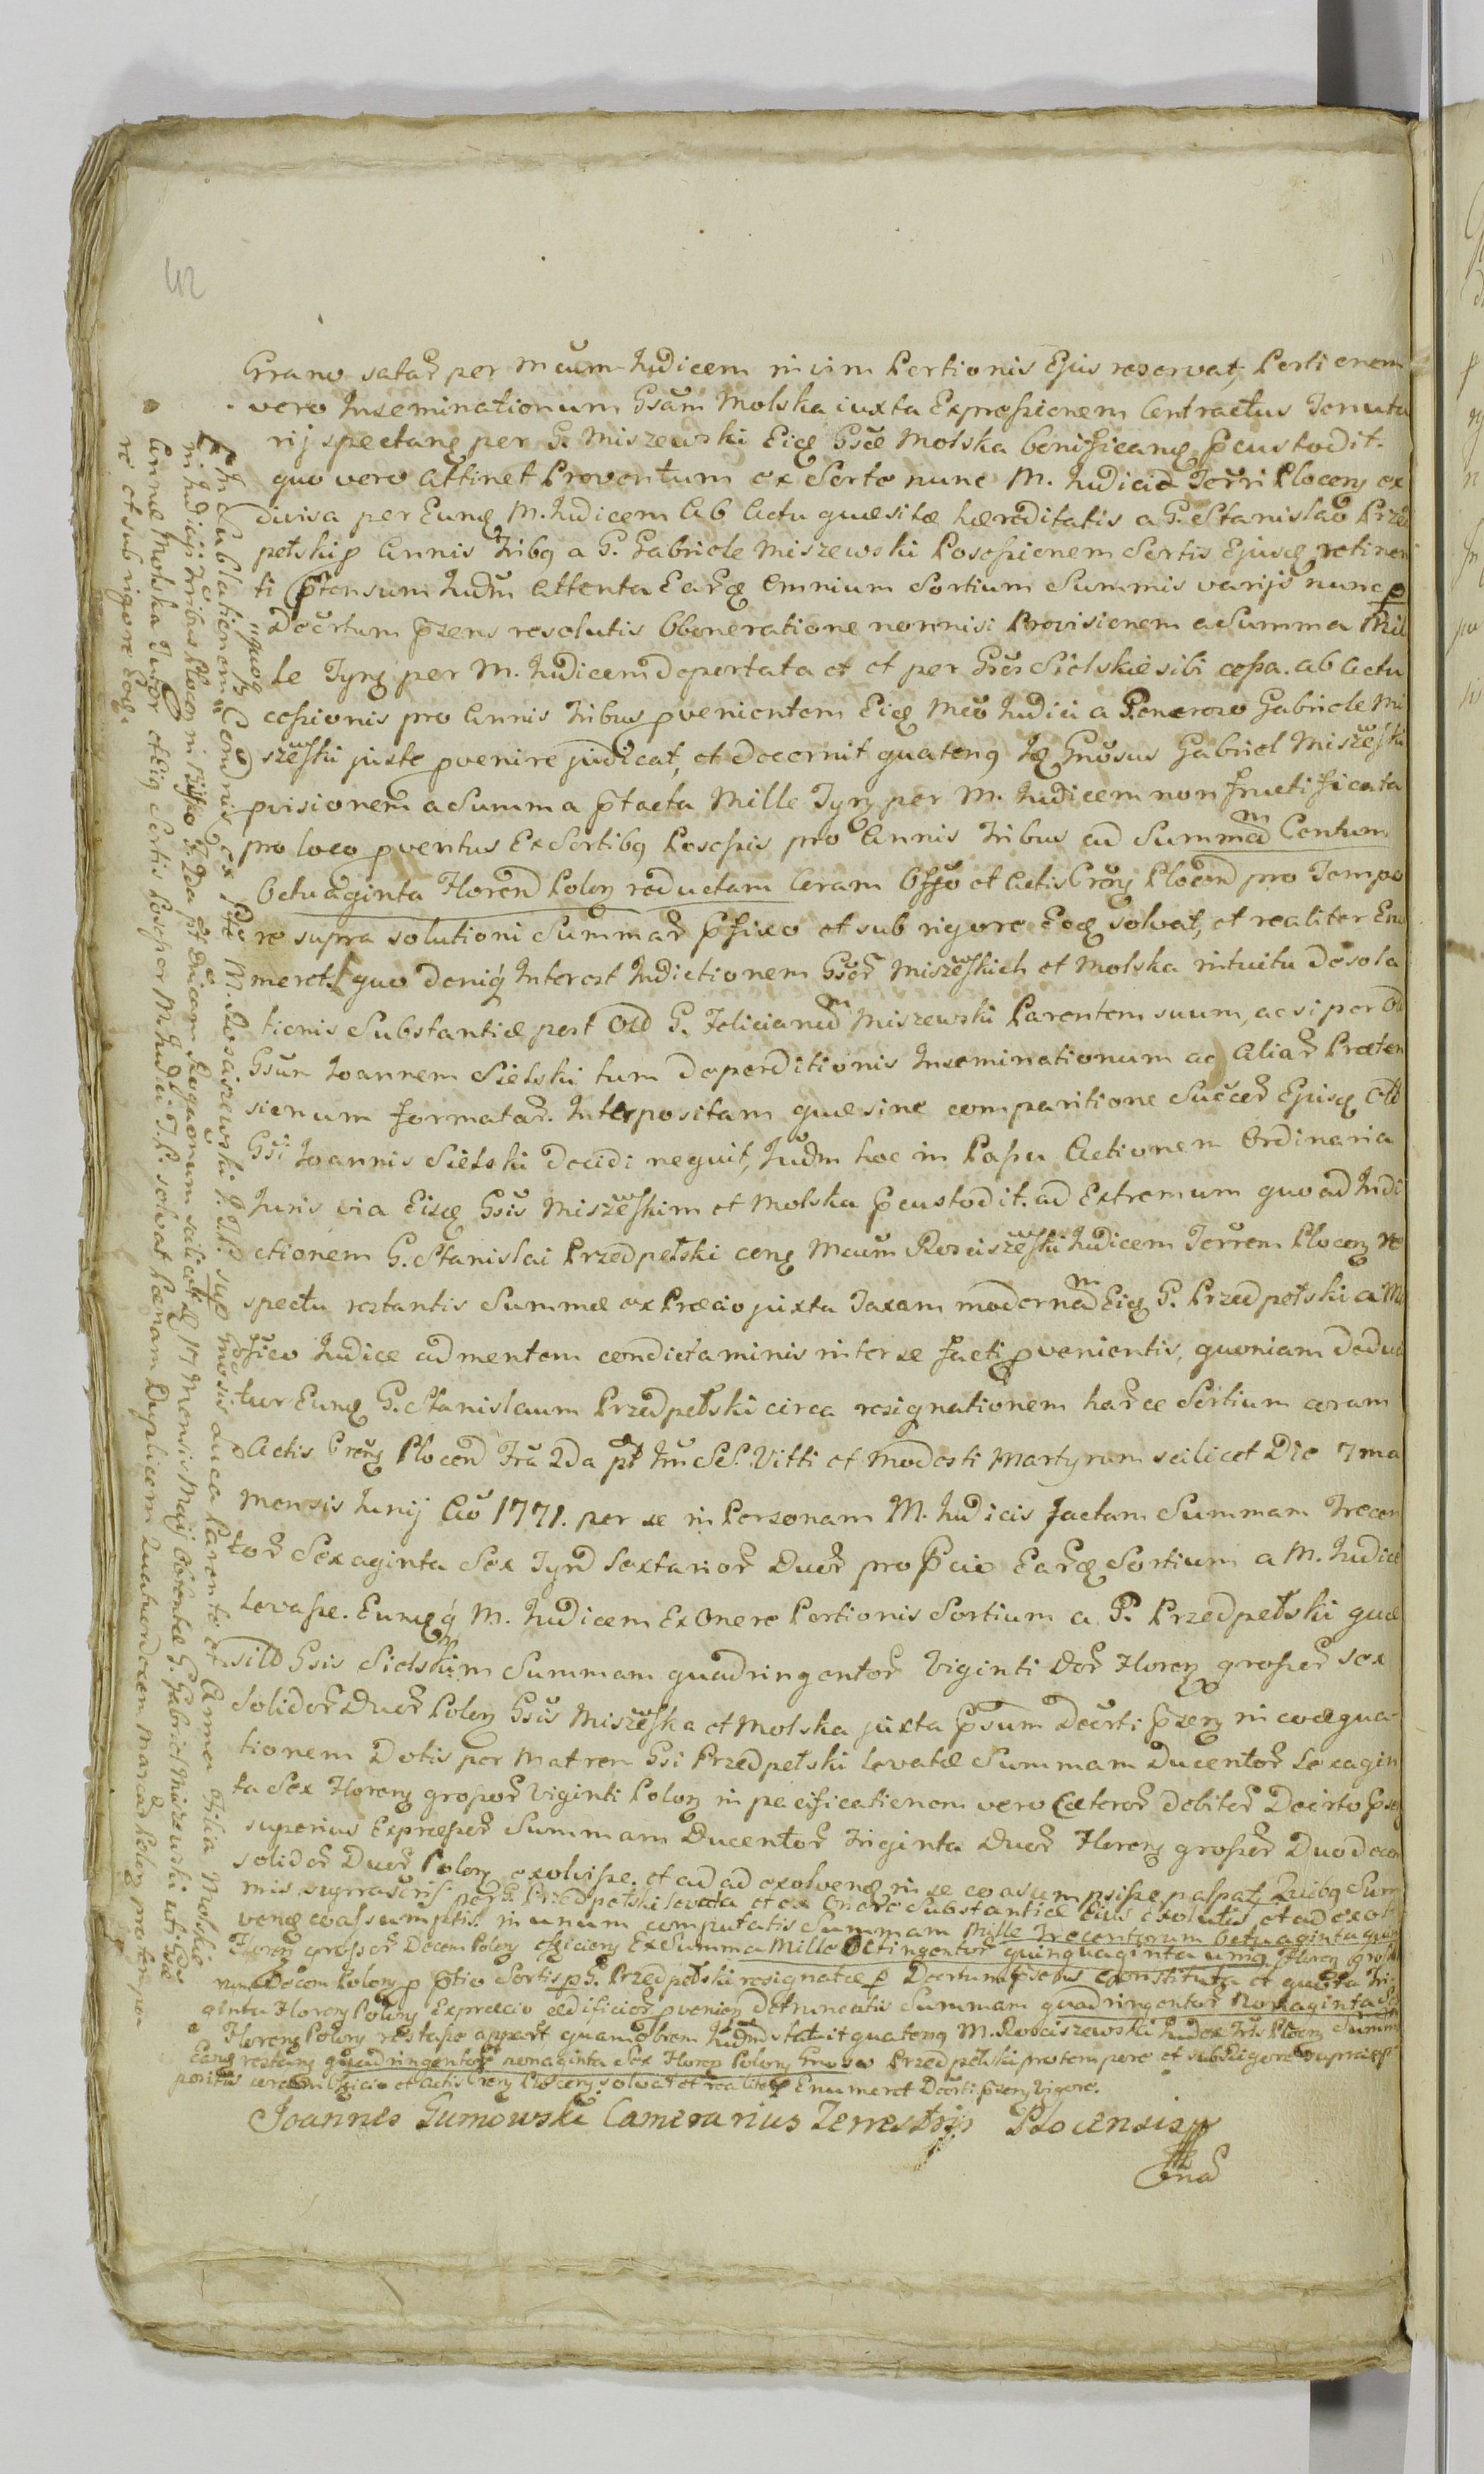 Grano satar per Mcum Judicem in vim Portionis Ejus reservat, Portionem
vero Inseminationum Gsam Molska iuxta Expressionem Contractus Tenuta
rij spectanȩ per G. Miszewski Eiȩ Gsæ Molska bonificanȩ p̄custodit.
quo vero attinet Proventum ex Sorte nunc M. Judicie Terri Plocenȩ ex
divisa per Eunȩ M. Judicem ab Actu quæsitæ hæreditatis a G. Stanislao Prze
pełski p Annis Tribȩ a G. Gabriele Miszewski Possessionem Sortis Ejusȩ retinen
ti p̄tensum Judm attenta Earȩ Omnium Sortium Summis varijs nunc p
Decrtum p̄sens resolutis Oboneratione nonnisi Provisionem a Summa Mil
le Tynȩ per M. Judicem deportata et et per Gsos Sielskie sibi cessa. ab Actu
cessionis pro Annis Tribus pvenientem Eiȩ Mco Judici a Generoso Gabriele Mi
szewski juste pvenire judicat, et decernit quatenȩ Iȩ Gnosus Gabriel Miszewski
pvisionem a Summa p̄tacta Mille Tynȩ per M. Judicem non fructificata
pro loco pventus Ex Sortibȩ Possessis pro Annis Tribus ad Summam Centum
Octuaginta Floren Polonȩ reductam Coram Offo et Actis Crenȩ Plocen pro Tempo
re supra solutioni Summar p̄fixo et sub rigore Eoȩ solvat, et realiter Enu
meret. quo deniq́ Interest Indictionem Gsor Miszewskich et Molska intuitu desola
tionis Substantiæ post Olb G. Felicianum Miszewski Parentem suum, ac si per Olb
Gsum Joannem Sielski tum deperditionis Inseminationum ac Aliar Præten
sionum formatar. Interpositam quæ sine comparitione Succer Ejusȩ Olb
Gsi Joannis Sielski decidi nequit, Judm hoc in Passu Actionem Ordinaria
Juris via Eisȩ Gsis Miszewskim et Molska p̄custodit. ad Extremum quo ad Indi
ctionem G. Stanislai Przedpełski conȩ Mcum Rosciszewski Judicem Terrem Plocenȩ re
spectu restantis Summæ ex Præcio juxta Taxam modernam Eiȩ G. Przedpełski a M
fico Judice ad mentem condictaminis inter se facti pvenientis, quoniam deduci
tur Eunȩ G. Stanislaum Przedpełski circa resignationem harce Sortium coram
Actis Crenȩ Plocen Fria 2da pt Fm SS. Vitti et Modesti Martyrum scilicet Die 7ma
mensis Junij Ao 1771. per se in Personam M. Judicis factam Summam Trecen
tor Sexaginta Sex Tynf Sextarior Duor pro p̄cio Earȩ Sortium a M. Judice
levasse. Eumȩq́ M. Judicem Ex Onere Portionis Sortium a G. Przedpełski quæ
silb Gsis Sielskim Summam quadringentor Viginti Dor Florenȩ grosser sex
solidor Duor Polonȩ Gsis Miszewska et Molska juxta p̄sum Decrti p̄senȩ in coæqua-
tionem Dotis per Matrem Gsi Przedpełski levatæ Summam Ducentor Sexagin
ta Sex Florenȩ grossor Viginti Polonȩ in pacificationem vero Cæteror debitor Decrto p̄sen
superius Expresser Summam Ducentor Triginta Duor Florenȩ grosser Duodecim
solidor Duor Polonȩ exolvisse. et ad ad exolvenȩ in se coasumpsisse passat. Quibȩ Sum
mis suprascris per G. Przedpełski levata et ex Onere Substantiæ Eius exolutis, et ad exol
venȩ coassumptis. in unum computatis Summam Mille Trecentorum Octuaginta quin
Florenȩ grossor Decem Polonȩ efficienȩ Ex Summa Mille Octingentor quinquaginta uniȩ Florenȩ grosso
rum Decem Polonȩ p p̄tio Sortis p G. Przedpełski resignatæ p Decrtum p̄sens constituta et quota Tri
ginta Florenȩ Polonȩ Ex præcio ædificior pvenienȩ detruncatis Summam quadringentor Nonaginta Sex
Florenȩ Polonȩ restare apparet, quamobrem Judm statuit quatenȩ M. Rosciszewski Judex Tris Plocenȩ Summ
Eanȩ restanȩ quadringentor nonaginta Sex Florenȩ Polonȩ Gnoso Przedpełski pro tempore et sub rigore supraexp
positis coram Officio et Actis Crenȩ Plocenȩ. solvat et realiter Enumeret Decrti p̄senȩ Vigore.
Joannes Gumowski Camerarius Terrestris Plocensis
In Sublationem Condnis ex Pte M. Rosciszewski J. T. P. sup Gnosis Luca Parente et Anna Filia Molskie
in Judicijs Tribus Plocen in Fria 2da pt Dnicam Rogaonum scilicet 17 Mensis Maij obtentæ G. Gabriel Miszewski uti Gsæ
Annæ Molska Tutor et Eiȩ Sortis Possessor M. Judici T. P. solvat Pænam Duplicem Quatuordecem Marcar Polonȩ pro tempo
re et sub rigore Eoȩ.